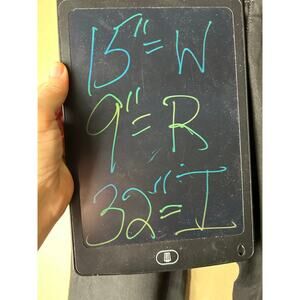 15"=W
9"=R
32"=I